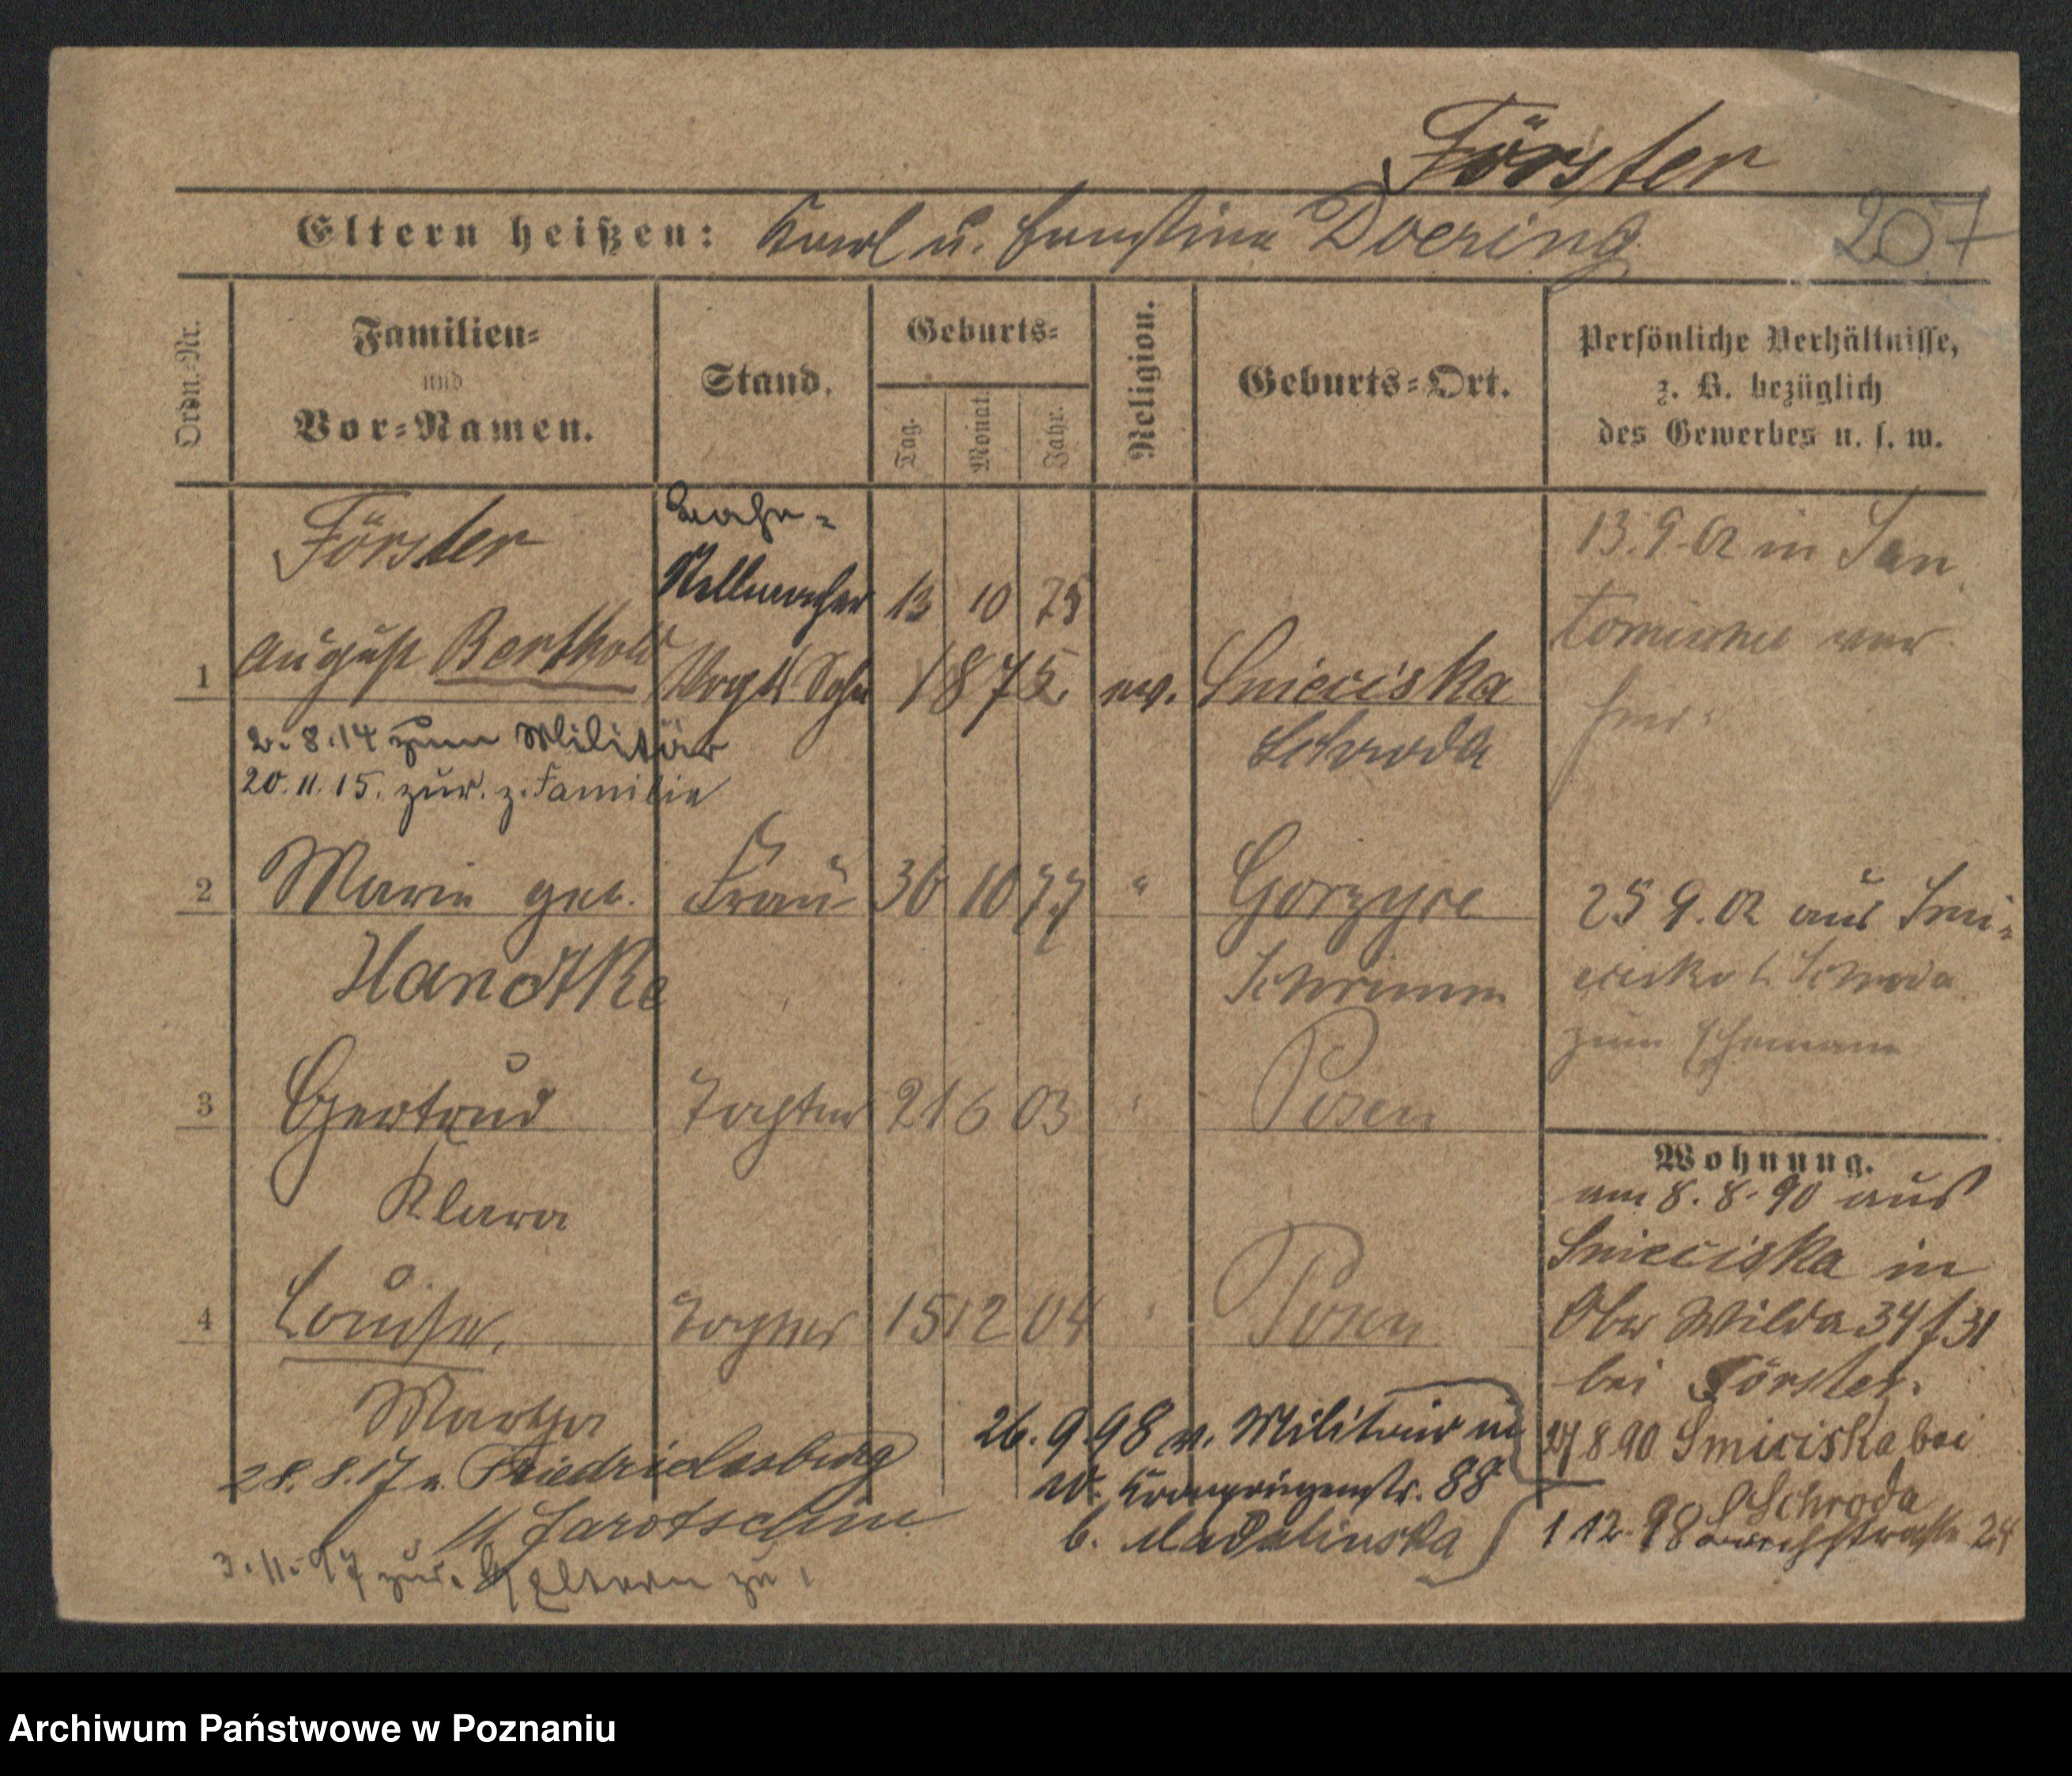 Förster
Eltern heißen: Karl u. Ernstine Doering
207
Ordn.-Nr.
Familien-
und
Vor-Namen.
Stand.
Geburts-
Tag. Monat. Jahr.
Religion.
Geburts-Ort.
Persönliche Verhältnisse,
z. B. bezüglich
des Gewerbes u. s. w.
Förster
Stellmacher 13 10 75
1 August Berthold Vogt Sohn 1875. ev. Snieciska
Schroda
13.9.02 in San
tomischel ver
heir.
2.8.14 zum Militär
20.11.15. zur. z. Familie
2 Marie geb. Frau 30 10 77 " Gorzyce
Handtke Schrimm
25 9. 02 aus Snie-
ciska b. Schroda
zum Ehemann
3 Gertrud Tochter 21 6 03 " Posen
Klara
4 Louise, Tochter 15 12 04 " Posen
Martha
Wohnung.
am 8. 8. 90 aus
Snieciska in
Ober Wilda 34 b 31
bei Förster.
27 8 90 Smiciska bei
Schroda
1 12. 98 24
26. 9 98 v. Militair in
W. Kronprinzenstr. 88
b. Madalinska
28. 8. 17 n. Friedrichsburg
Jarotschin
3. 11. 97 zur. Eltern zu
Archiwum Państwowe w Poznaniu